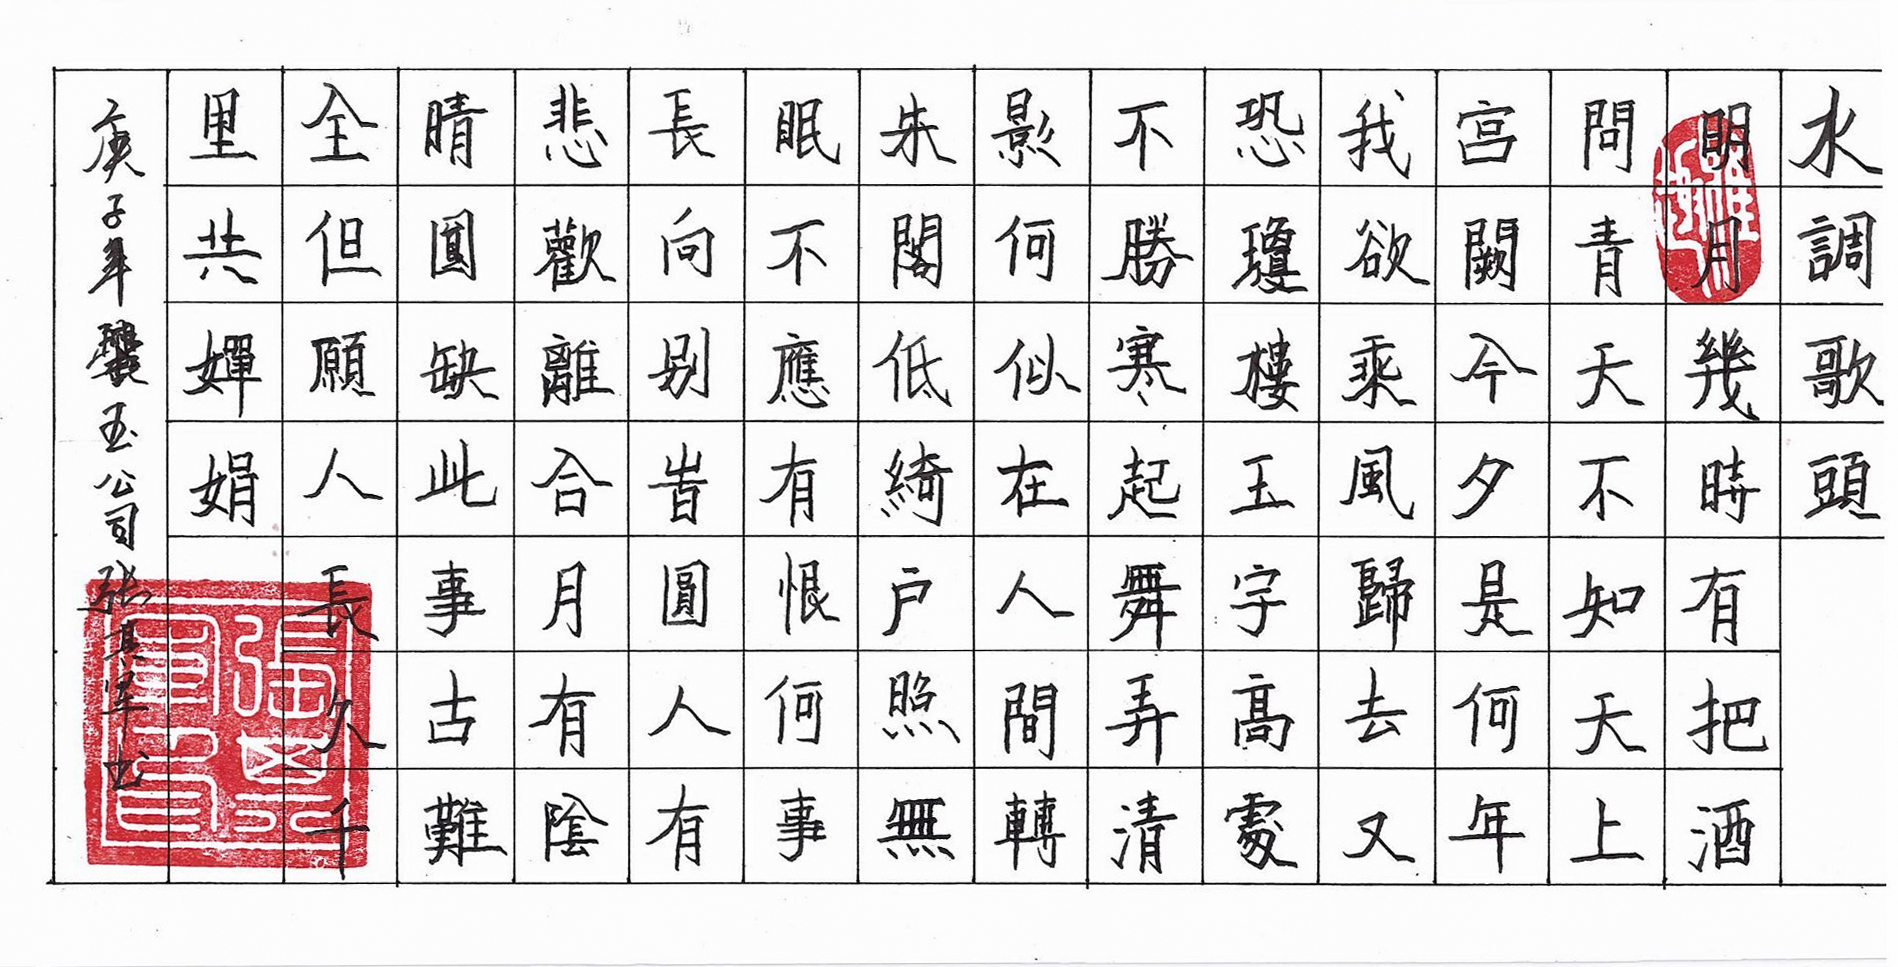 水調歌頭
明月幾時有把酒
問青天不知天上
宫闕今夕是何年
我欲乘風歸去又
恐瓊樓玉宇高處
不勝寒起舞弄清
影何似在人間轉
朱閣低綺户照無
眠不應有恨何事
長向别旹圓人有
悲歡離合月有陰
晴圓缺此事古難
全但願人長久千
里共嬋娟
庚子年玉公司张其军书